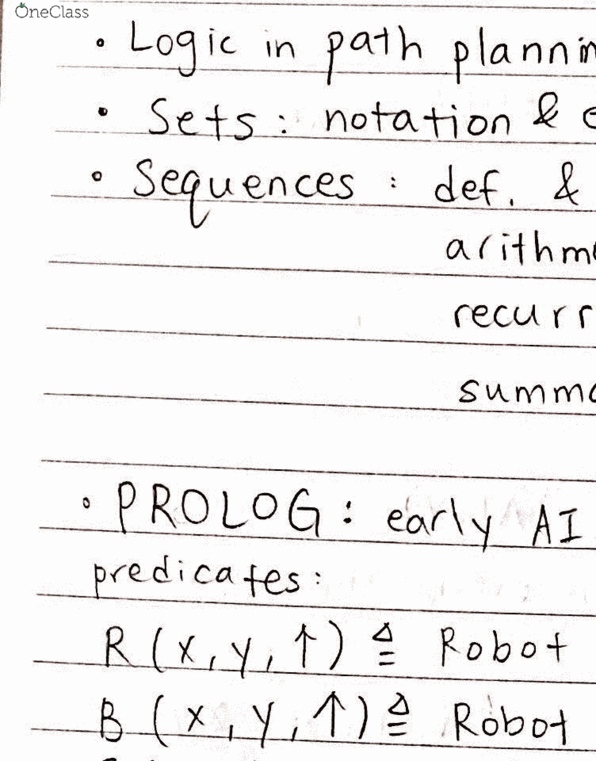 OneClass
• Logic in path plannin
• Sets : notation & e
• Sequences : def. &
arithme
recurr
summa
• PROLOG : early AI
predicates :
R (x, y, ↑) ≜ Robot
B (x, y, ↑) ≜ Robot